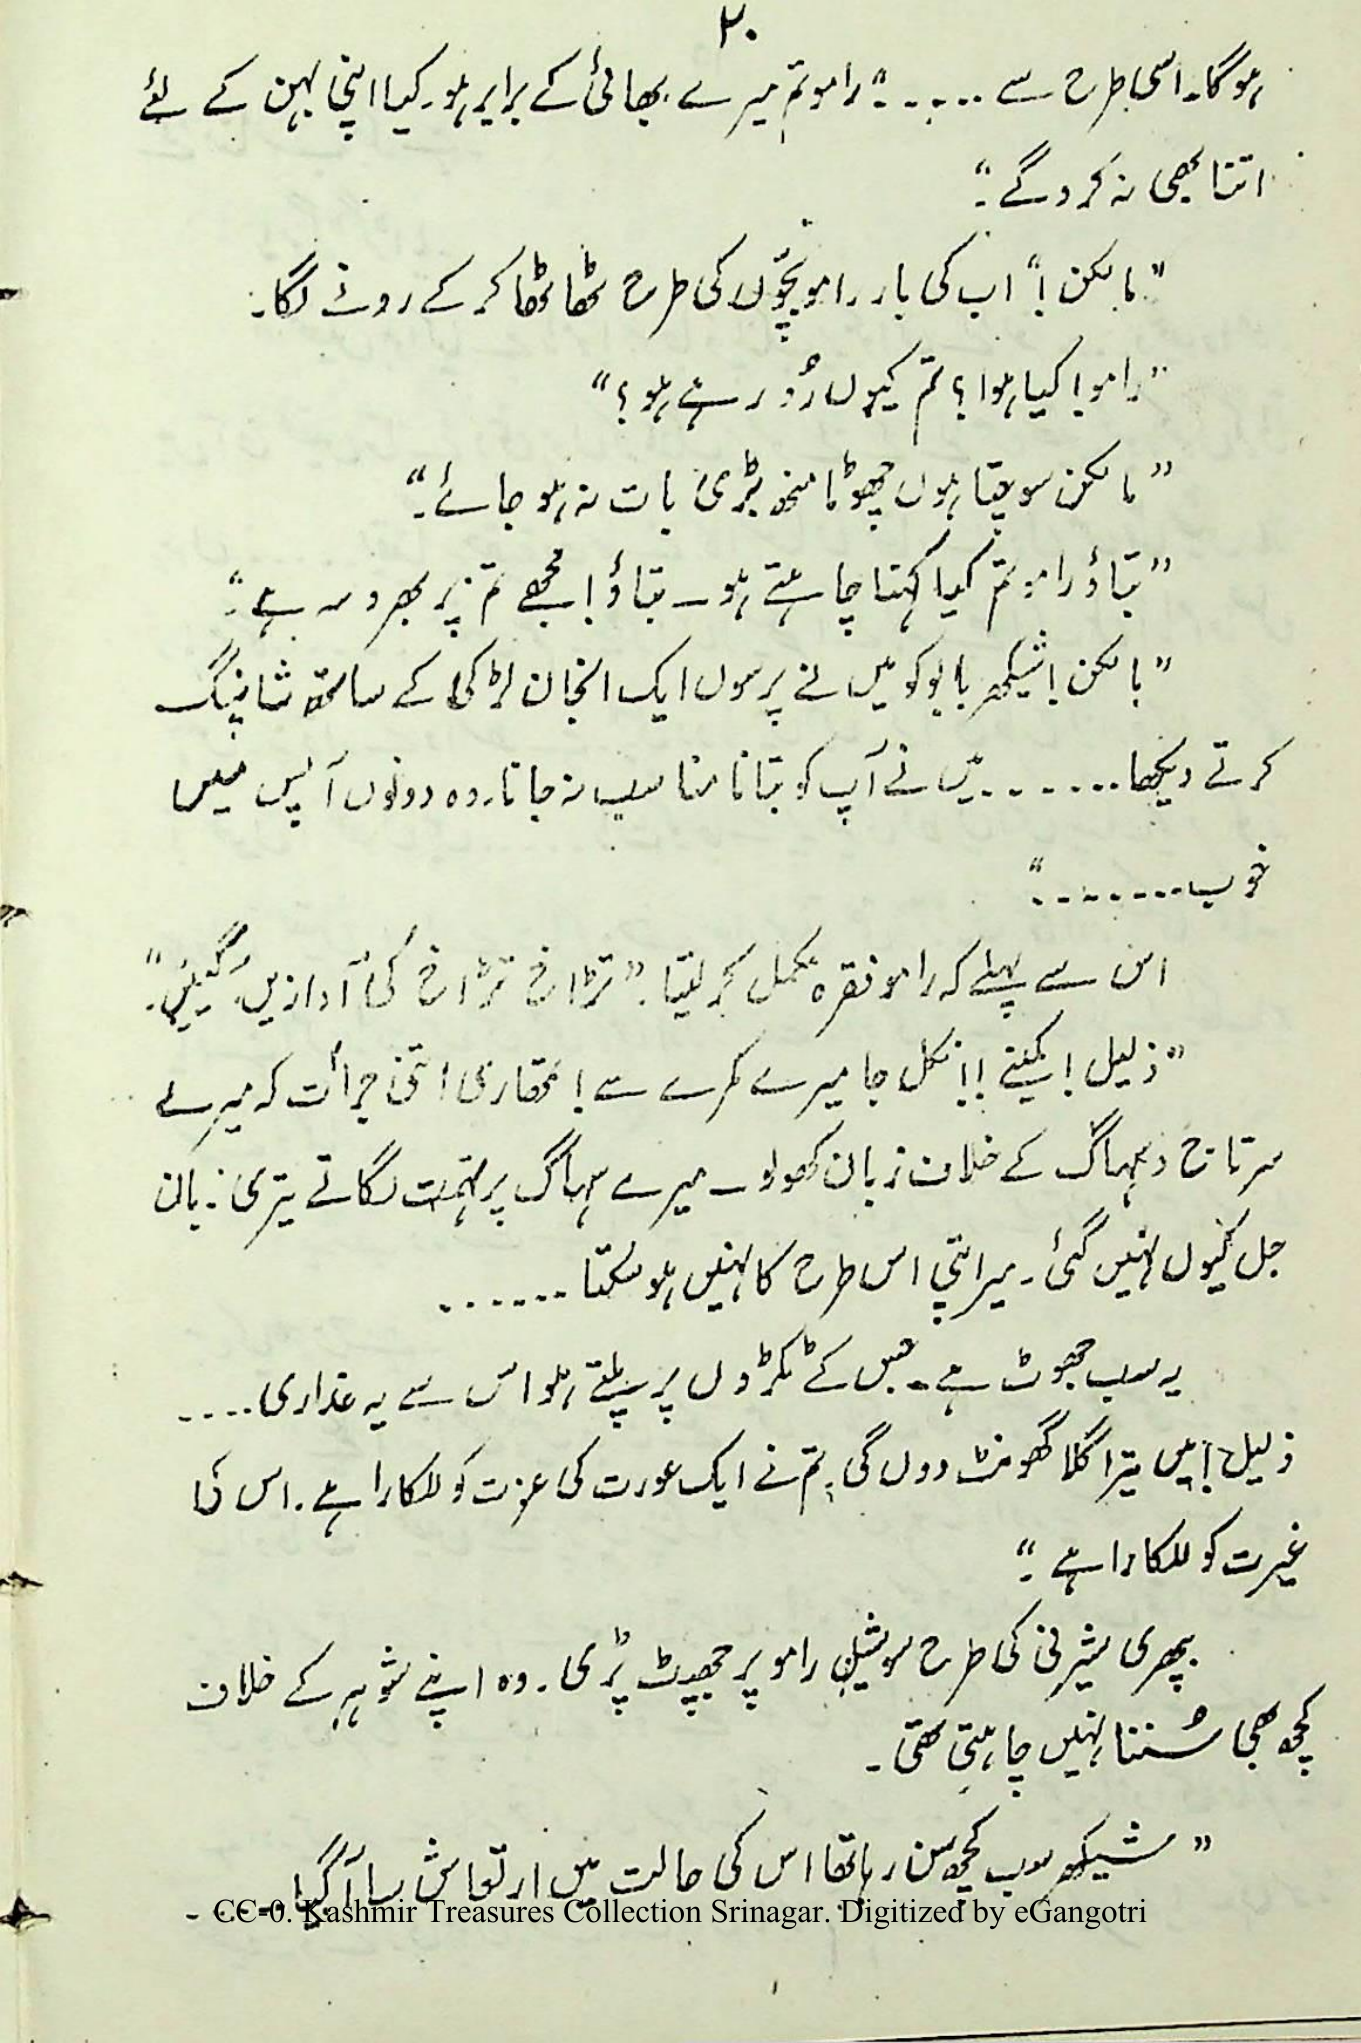 ۲۰
ہوگا۔ اسی طرح سے ...... ۔" رامو تم میرے بھائی کے برابر ہو۔ کیا اپنی بہن کے لئے
اتنا بھی نہ کرو گے۔"
"مالکن!" اب کی بار رامو بچّوں کی طرح ٹھاٹھا کر کے رونے لگا۔
"رامو! کیا ہوا؟ تم کیوں رُو رہے ہو؟"
"مالکن سوچتا ہوں چھوٹا منھ بڑی بات نہ ہو جائے۔"
"بتاؤ رامو تم کیا کہنا چاہتے ہو۔ بتاؤ! مجھے تم پر بھروسہ ہے۔"
"مالکن! شیکھر بابو کو میں نے پرسوں ایک انجان لڑکی کے ساتھ شاپنگ
کرتے دیکھا....... میں نے آپ کو بتانا مناسب نہ جانا۔ وہ دونوں آپس میں
خوب ........"
اس سے پہلے کہ رامو فقرہ مکمل کر لیتا۔ "تڑاخ تڑاخ کی آوازیں گئیں۔"
"ذلیل! کمینے!! نکل جا میرے کمرے سے! تمھاری اتنی جرأت کہ میرے
سرتاج و سہاگ کے خلاف زبان کھولو۔ میرے سہاگ پر تہمت لگاتے تیری زبان
جل کیوں نہیں گئی۔ میرا پتی اس طرح کا نہیں ہو سکتا ......
یہ سب جھوٹ ہے۔ جس کے ٹکڑوں پر پلتے ہو اس سے یہ غداری....
ذلیل! میں تیرا گلا گھونٹ دوں گی۔ تم نے ایک عورت کی عزت کو للکارا ہے۔ اس کی
غیرت کو للکارا ہے۔"
بپھری شیرنی کی طرح سوشیل رامو پر جھپٹ پڑی۔ وہ اپنے شوہر کے خلاف
کچھ بھی سُننا نہیں چاہتی تھی۔
"شیکھر سب کچھ سن رہا تھا اس کی حالت میں ارتعاش سا آگیا
CC-0. Kashmir Treasures Collection Srinagar. Digitized by eGangotri